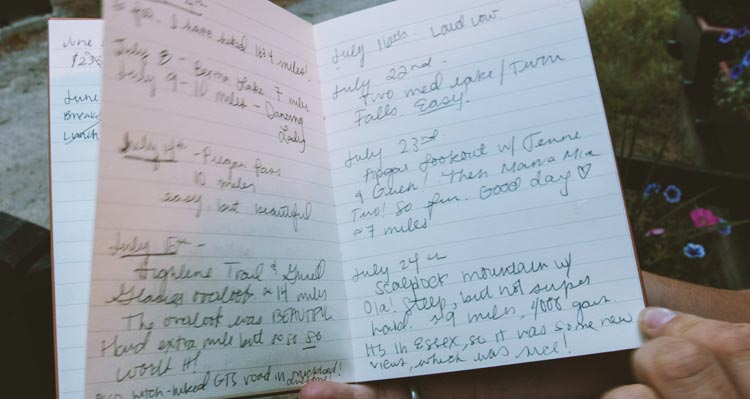 June
$23
June
Break
Lunch
So far, I have hiked 164 miles!
July 8 - Lake 7 miles
July 9 - 10 miles - Dancing
Lady
July - Piegan Pass
10 miles
easy, but beautiful
July 15th -
Highline Trail &
Glacier overlook ≈ 14 miles
The overlook was BEAUTIFUL
Hard extra mile but so so so
worth it!
hitch-hiked GTS road in
July 16th Laid low.
July 22nd -
Two med Lake / Twin
Falls Easy.
July 23rd
Lookout w/ Jenne
& Gwen! Then Mama Mia
Two! So fun. Good day ♡
≈7 miles
July 24th
Scalplock mountain w/
Ola! Steep, but not super
hard. 9 miles, 4000 gain.
It's in Essex, so it was some new
views, which was nice!